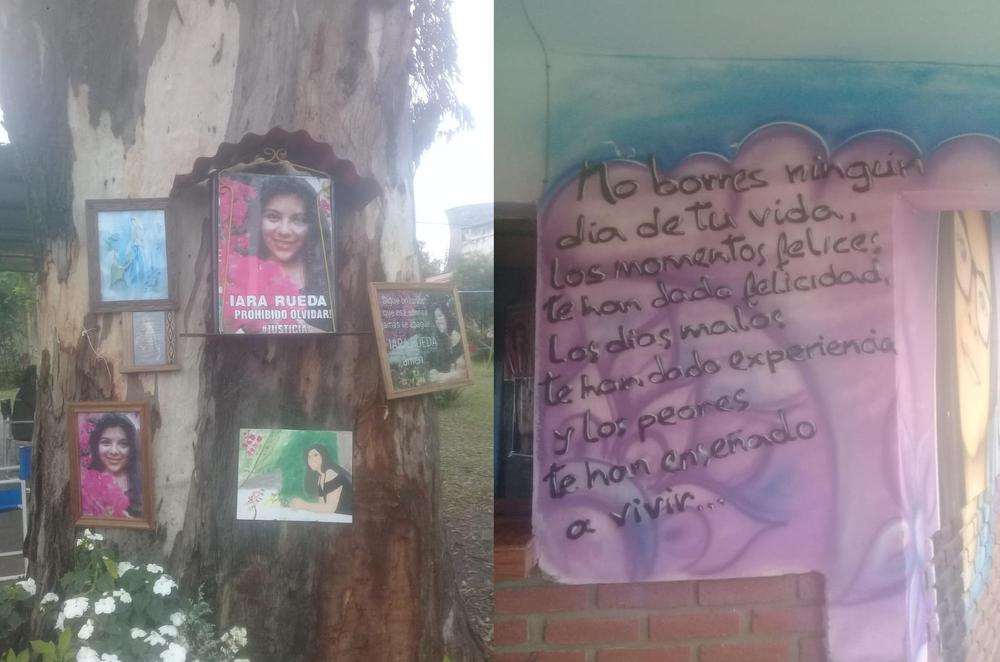 IARA RUEDA
PROHIBIDO OLVIDAR!
#JUSTICIA
Sigue brillando
que esa
jamás se apague
IARA RUEDA
No borres ningún
dia de tu vida,
los momentos felices
te han dado felicidad,
Los dias malos
te han dado experiencia
y los peores
te han enseñado
a vivir...